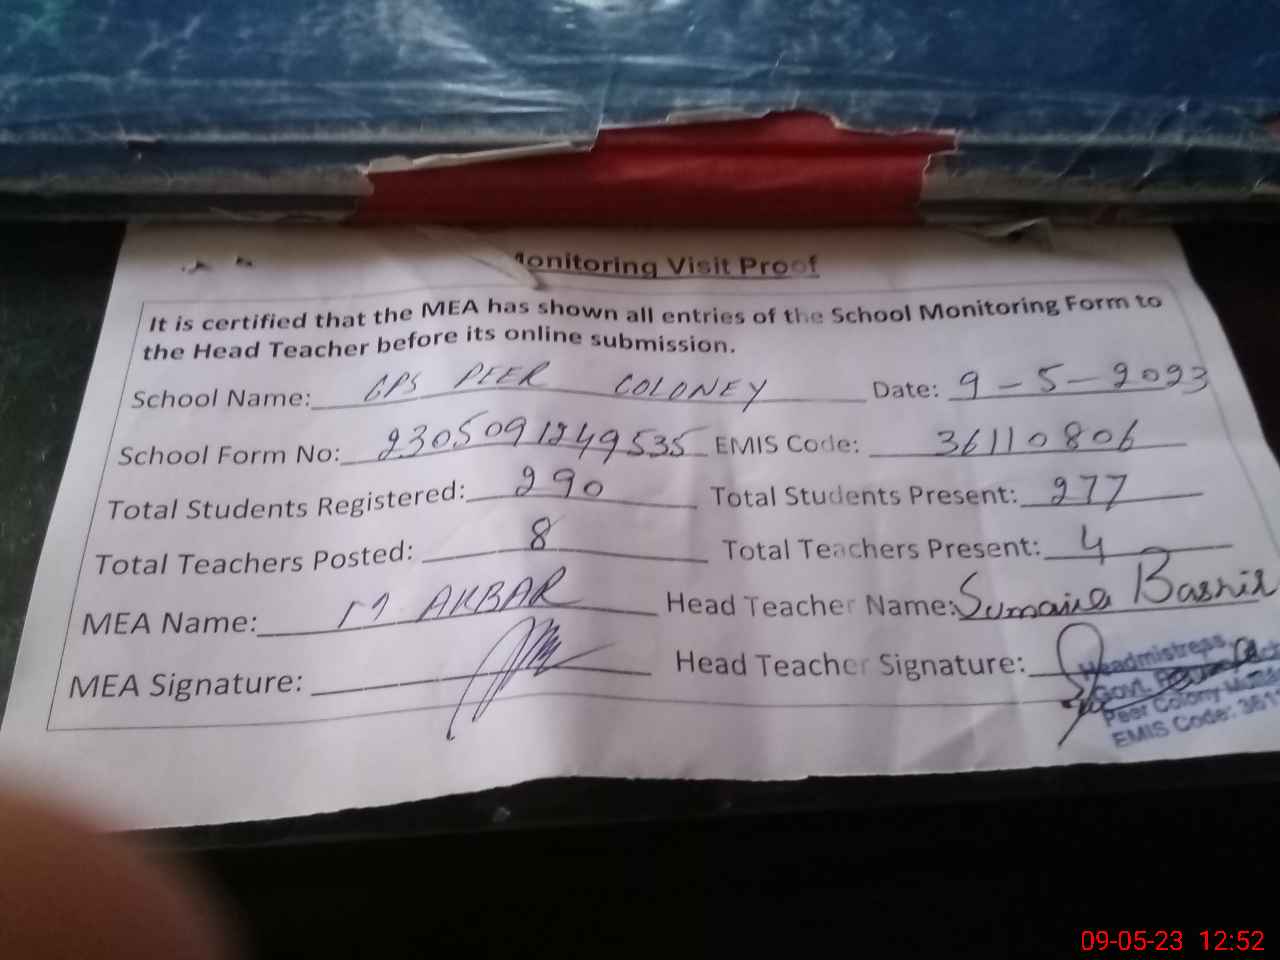 Monitoring Visit Proof
It is certified that the MEA has shown all entries of the School Monitoring Form to
the Head Teacher before its online submission.
School Name: GPS PEER COLONEY Date: 9-5-2023
School Form No: 2305091249535 EMIS Code: 36110806
Total Students Registered: 290 Total Students Present: 277
Total Teachers Posted: 8 Total Teachers Present: 4
MEA Name: M AKBAR Head Teacher Name: Sumaira Bashir
MEA Signature: Head Teacher Signature:
Headmistress,
Govt.
Peer Colony
EMIS Code: 361
09-05-23 12:52